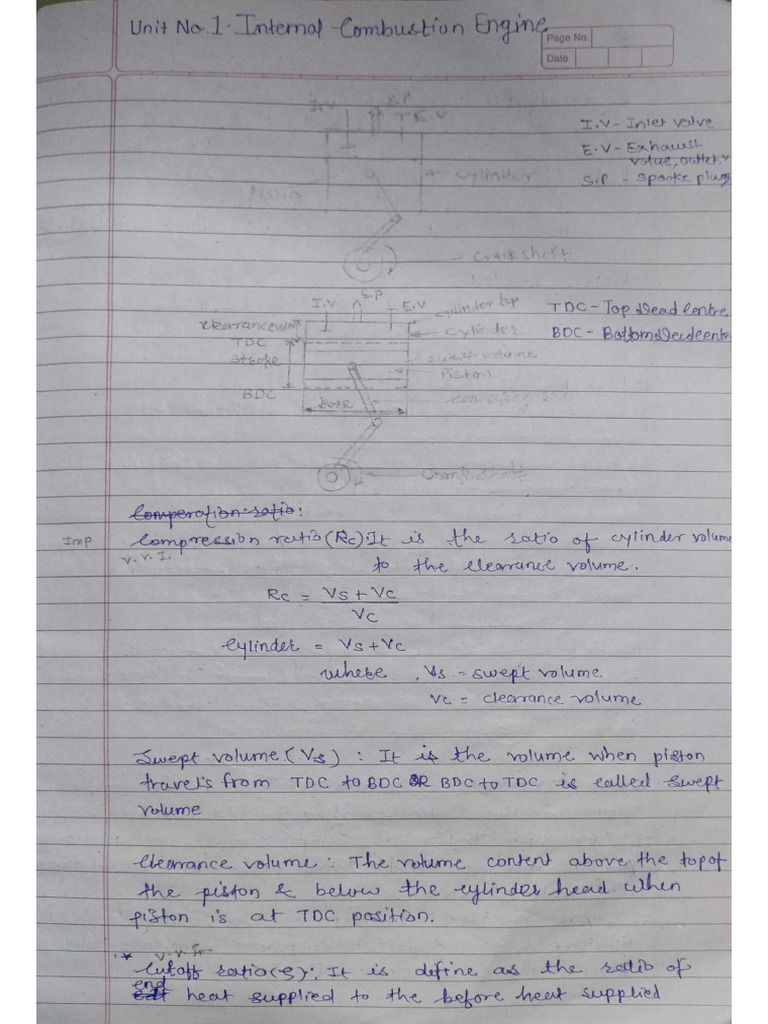 Unit No.1. Internal Combustion Engine
Page No.
Date
I.V S.P E.V
I.V - Inlet valve
E.V - Exhaust
valve, outlet.v
S.P - Sparke plug
Piston
cylinder
Crankshaft
I.V S.P E.V
cylinder top
TDC - Top Dead Centre
Clearance
TDC
cylinder
BDC - Bottom Dead centr
stroke
swept volume
Piston
BDC
Bore
connecting rod
Crankshaft
Comperation ratio:
Imp
Compression ratio (Rc): It is the ratio of cylinder volume
V.V.I.
to the clearance volume.
Rc = Vs + Vc
Vc
Cylinder = Vs + Vc
where, Vs = swept volume
Vc = clearance volume
Swept volume (Vs) : It is the volume when piston
travels from TDC to BDC OR BDC to TDC is called swept
volume
Clearance volume : The volume content above the top of
the piston & below the cylinder head when
piston is at TDC position.
* V.V.I
Cutoff ratio(e): It is define as the ratio of
end
heat supplied to the before heat supplied